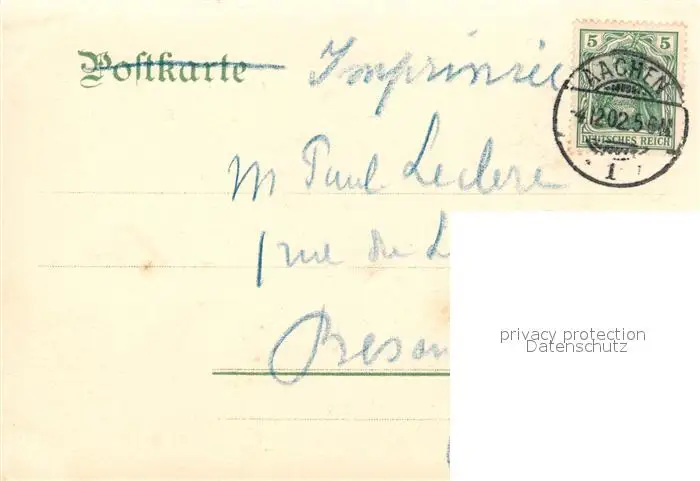 Postkarte Imprimée
5 5
AACHEN
-4.12.02.5-6N.
DEUTSCHES REICH
1
M Paul Leclere
1 rue du L
Besan
privacy protection
Datenschutz